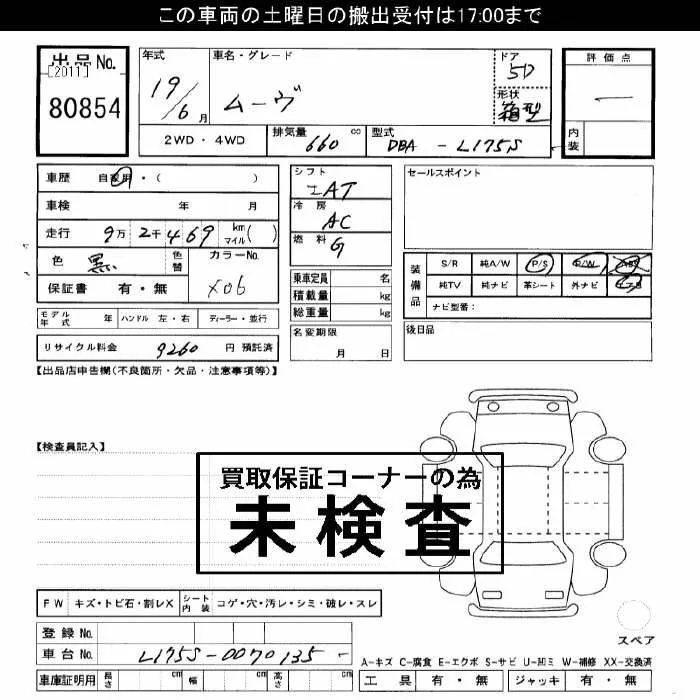 この車両の土曜日の搬出受付は17:00まで
出品No.
[2011]
80854
年式 19/6月
車名・グレード
ムーヴ
ドア 5D
形状 箱型
評価点
―
内装
2WD・4WD
排気量 660 cc
型式 DBA - L175S
車歴 自家用・( )
車検 年 月
走行 9万2千469 km マイル( )
色 黒 色替 カラーNo. X06
保証書 有・無
シフト IAT
冷房 AC
燃料 G
セールスポイント
装備品
S/R 純A/W P/S P/W ABS
純TV 純ナビ 革シート 外ナビ エアB
ナビ型番:
乗車定員 名
積載量 kg
総重量 kg
モデル年式 年 ハンドル 左・右 ディーラー・並行
リサイクル料金 9260 円 預託済
名変期限 月 日
後日品
【出品店申告欄(不良箇所・欠品・注意事項等)】
【検査員記入】
買取保証コーナーの為
未検査
FW キズ・トビ石・割レX シート内装 コゲ・穴・汚レ・シミ・破レ・スレ
スペア
登録No.
車台No. L175S-0070135 -
A-キズ C-腐食 E-エクボ S-サビ U-凹ミ W-補修 XX-交換済
車庫証明用 長さ cm 幅 cm 高さ cm
工具 有・無 ジャッキ 有・無